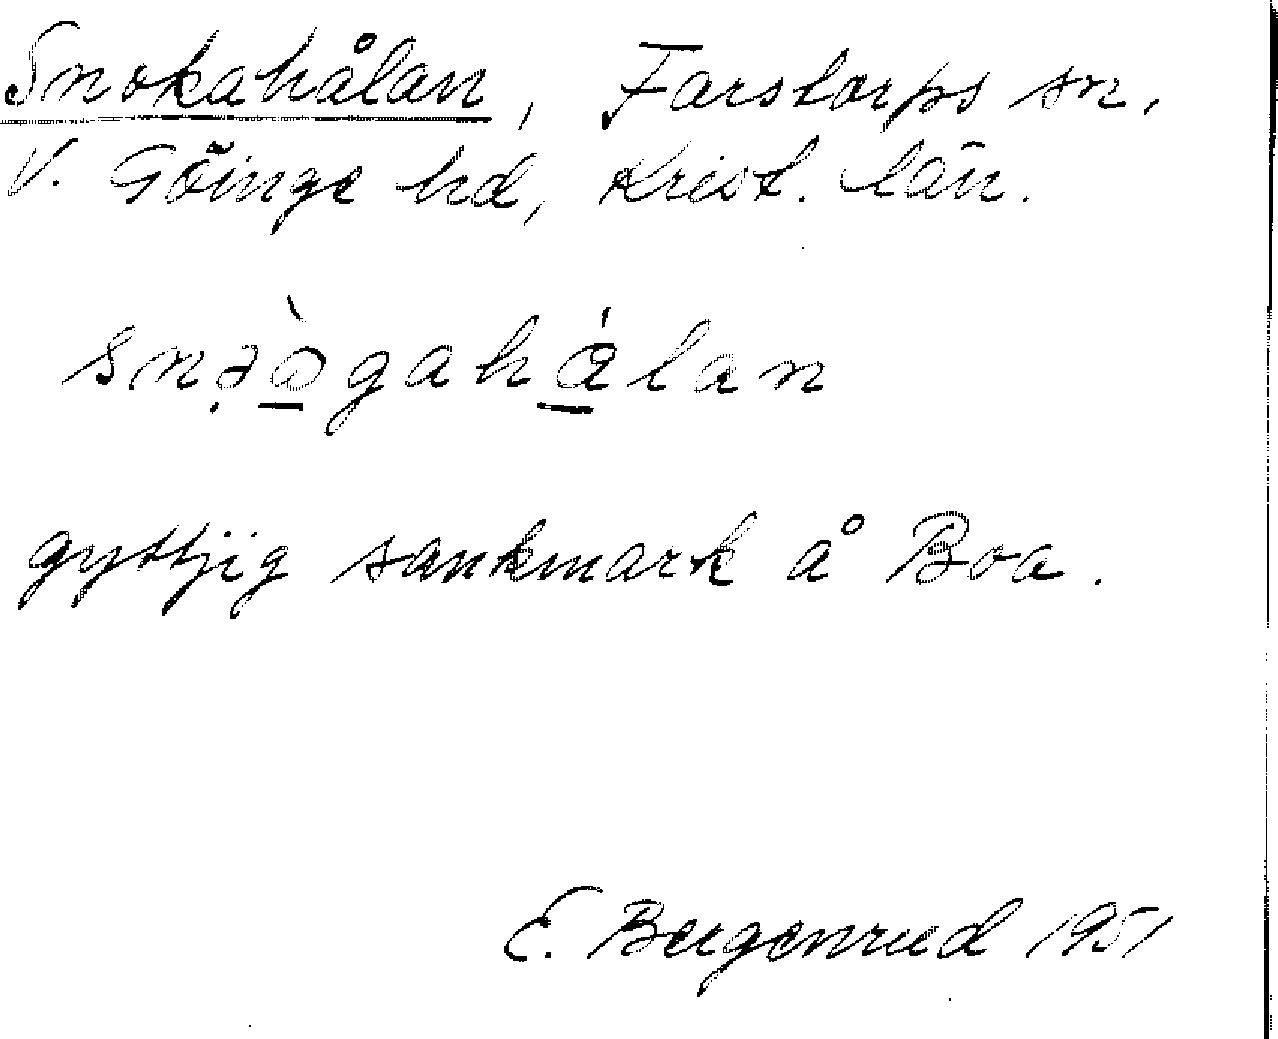 Snokahålan, Farstorps sn,
V. Göinge hd, Krist. län.
snə̣ò̱gahá̱lan
gyttjig sankmark å Boa.
E. Bergenrud 1951